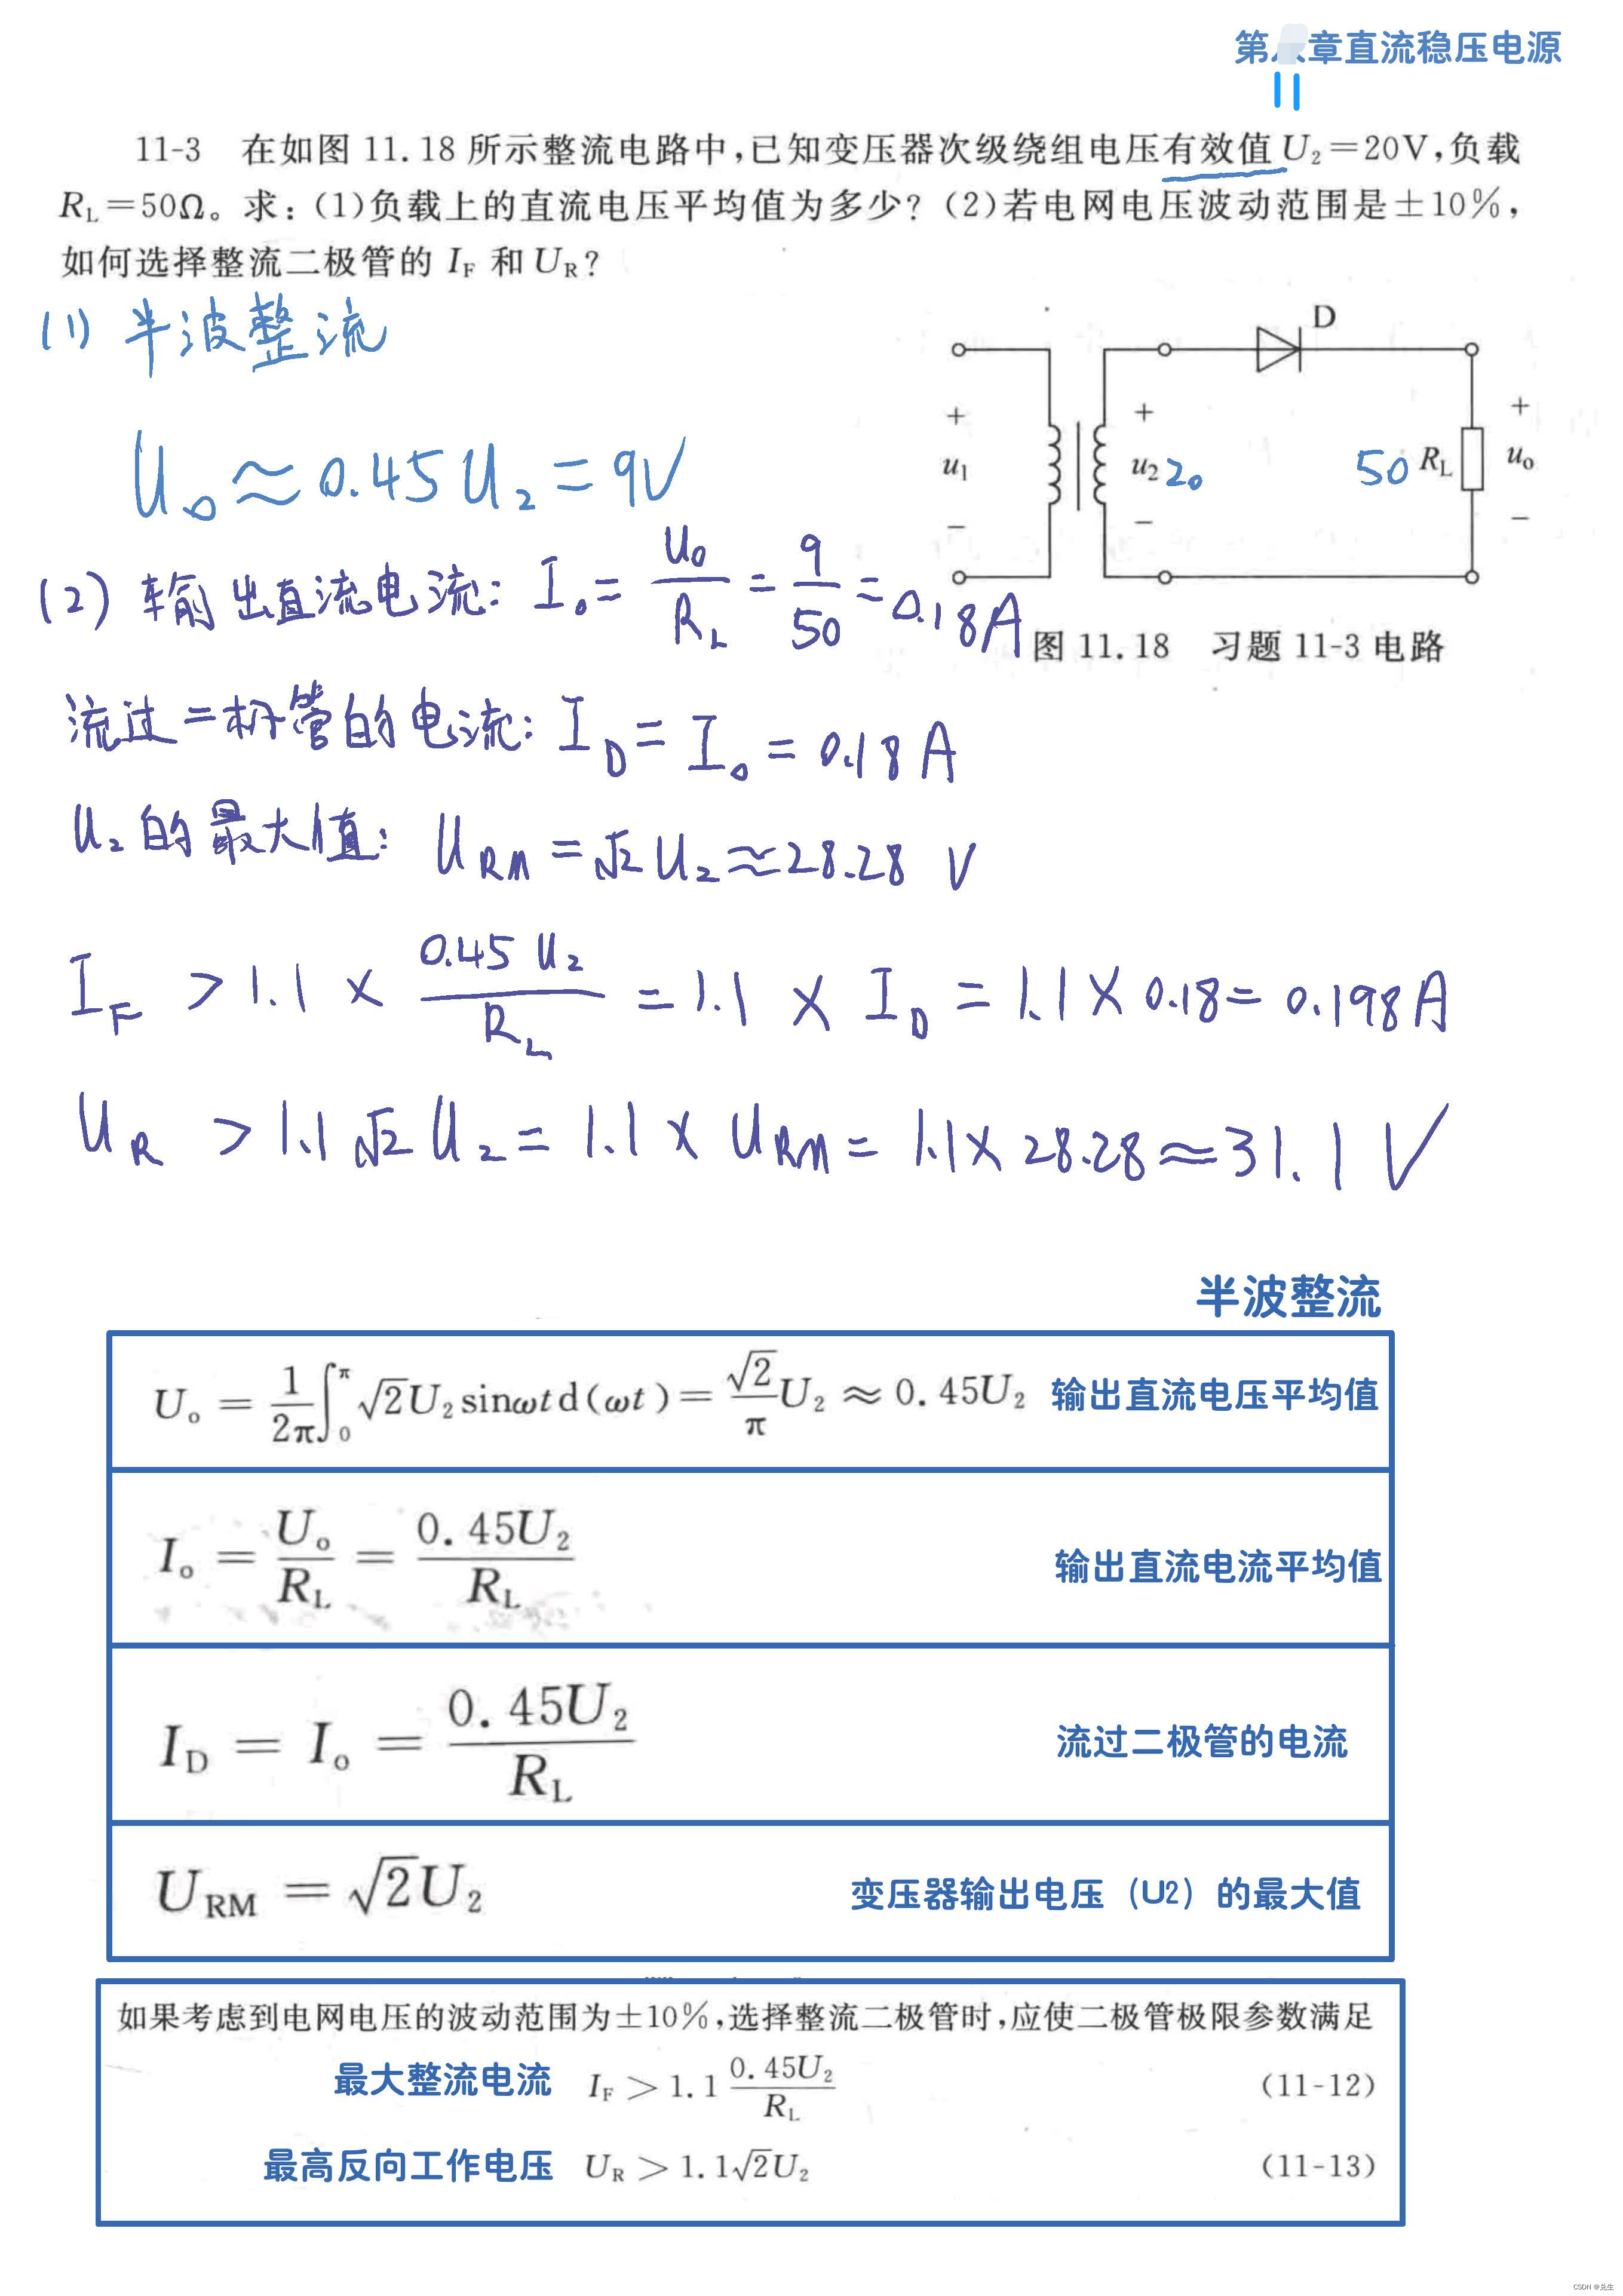 第 章直流稳压电源
11
11-3 在如图 11.18 所示整流电路中,已知变压器次级绕组电压有效值 U₂=20V,负载
R_L=50Ω。求:(1)负载上的直流电压平均值为多少?(2)若电网电压波动范围是±10%,
如何选择整流二极管的 I_F 和 U_R?
(1) 半波整流
U₀≈0.45U₂=9V
D
+ + +
u₁ u₂ 20 50 R_L u_o
− − −
图 11.18 习题 11-3 电路
(2) 输出直流电流: I₀= U₀/R_L = 9/50 = 0.18A
流过二极管的电流: I_D = I₀ = 0.18A
U₂的最大值: U_RM = √2 U₂ ≈ 28.28 V
I_F > 1.1 × 0.45U₂/R_L = 1.1 × I_D = 1.1×0.18 = 0.198A
U_R > 1.1√2 U₂ = 1.1×U_RM = 1.1×28.28≈31.1 V
半波整流
U_o = 1/2π ∫₀^π √2U₂sinωtd(ωt) = √2/π U₂ ≈ 0.45U₂ 输出直流电压平均值
I_o = U_o/R_L = 0.45U₂/R_L 输出直流电流平均值
I_D = I_o = 0.45U₂/R_L 流过二极管的电流
U_RM = √2U₂ 变压器输出电压(U2)的最大值
如果考虑到电网电压的波动范围为±10%,选择整流二极管时,应使二极管极限参数满足
最大整流电流 I_F > 1.1 0.45U₂/R_L (11-12)
最高反向工作电压 U_R > 1.1√2U₂ (11-13)